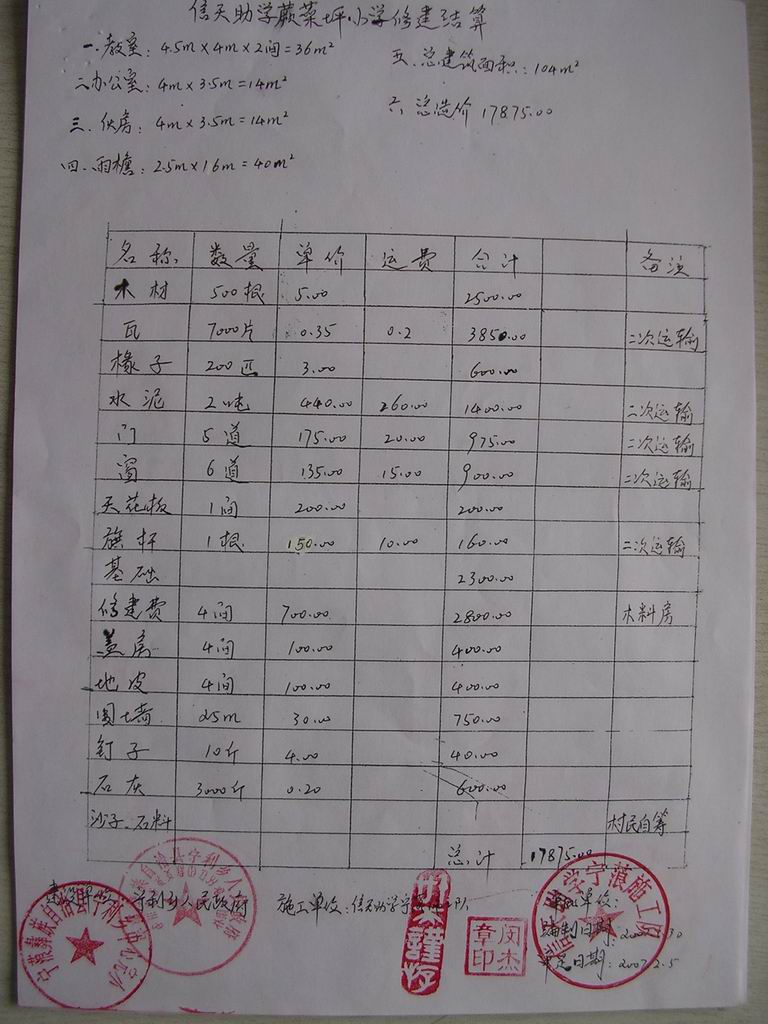 信天助学蕨菜坪小学修建结算
一.教室：4.5m×4m×2间=36m²
五.总建筑面积：104m²
二办公室：4m×3.5m=14m²
六.总造价 17875.00
三.伙房：4m×3.5m=14m²
四.雨檐：2.5m×16m=40m²
名称 数量 单价 运费 合计 备注
木材 500根 5.00 2500.00
瓦 7000片 0.35 0.2 3850.00 二次运输
椽子 200匹 3.00 600.00
水泥 2吨 440.00 260.00 1400.00 二次运输
门 5道 175.00 20.00 975.00 二次运输
窗 6道 135.00 15.00 900.00 二次运输
天花板 1间 200.00 200.00
旗杆 1根 150.00 10.00 160.00 二次运输
基础 2300.00
修建费 4间 700.00 2800.00 木料房
盖房 4间 100.00 400.00
地皮 4间 100.00 400.00
围墙 25m 30.00 750.00
钉子 10斤 4.00 40.00
石灰 3000斤 0.20 600.00
沙子.石料 村民自筹
总计 17875.00
建设单位：宁利乡人民政府 施工单位：信天助学宁 队 单位：
编制日期：
审定日期：2007.2.5
闵杰
章印
学宁蒗施工队